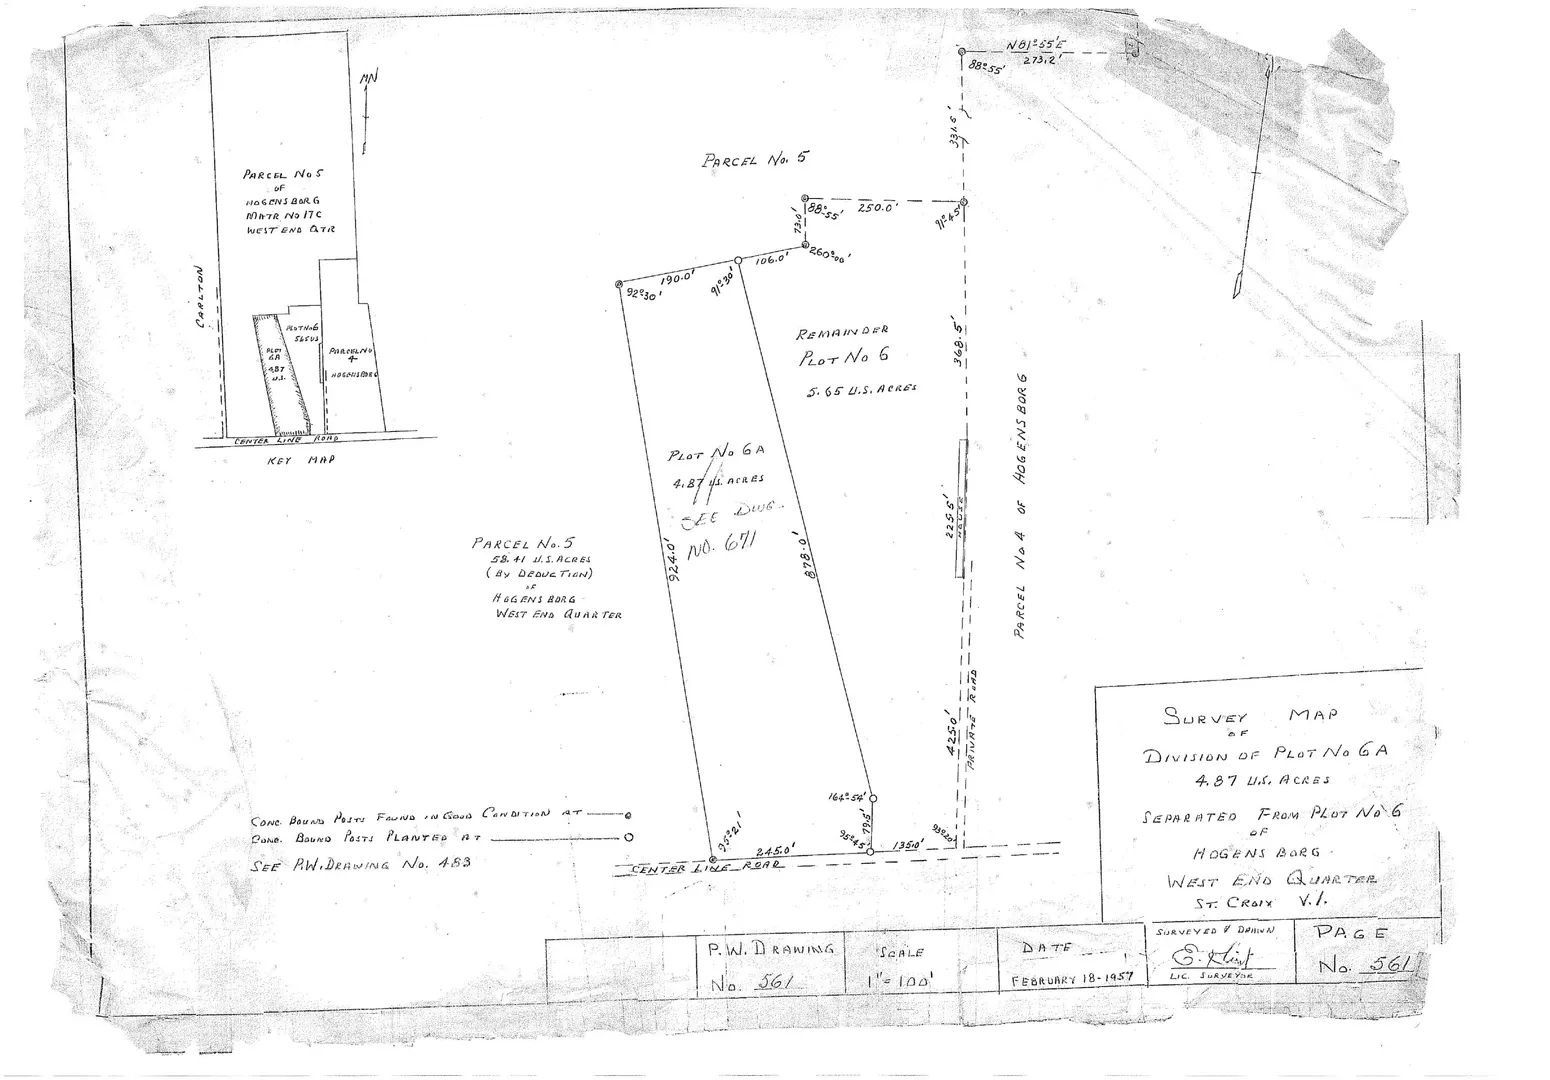 MN
PARCEL No 5
OF
HOGENSBORG
MATR No 17C
WEST END QTR
CARLTON
PLOT No 6
5.65 US
PLOT
6A
4.87
U.S.
PARCEL No
4
HOGENSBORG
CENTER LINE ROAD
KEY MAP
N81°55'E
273.2'
88°55'
331.5'
PARCEL No. 5
88°55'
250.0'
91°45'
73.0'
260°00'
106.0'
190.0'
92°30'
91°30'
REMAINDER
PLOT No 6
5.65 U.S. ACRES
368.5'
PLOT No 6A
4.87 U.S. ACRES
SEE DWG.
NO. 671
PARCEL No. 5
58.41 U.S. ACRES
(BY DEDUCTION)
OF
HOGENSBORG
WEST END QUARTER
924.0'
878.0'
225.5'
HOUSE
PARCEL No 4 OF HOGENSBORG
425.0'
PRIVATE ROAD
164°54'
79.5'
95°21'
245.0'
95°45'
135.0'
93°20'
CENTER LINE ROAD
CONC. BOUND POSTS FOUND IN GOOD CONDITION AT
CONC. BOUND POSTS PLANTED AT
SEE P.W. DRAWING No. 483
SURVEY MAP
OF
DIVISION OF PLOT No 6A
4.87 U.S. ACRES
SEPARATED FROM PLOT No 6
OF
HOGENSBORG
WEST END QUARTER
ST. CROIX V.I.
P.W. DRAWING
No. 561
SCALE
1" = 100'
DATE
FEBRUARY 18-1957
SURVEYED & DRAWN
LIC. SURVEYOR
PAGE
No. 561